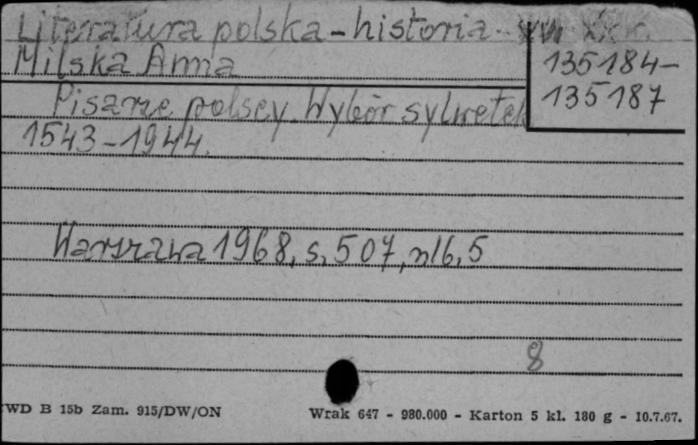 Literatura polska - historia - XVI XX w.
Milska Anna
135184-
135187
Pisarze polscy. Wybór sylwetek
1543-1944.
Warszawa 1968, s, 507, nlb, 5
8
WD B 15b Zam. 915/DW/ON
Wrak 647 - 980.000 - Karton 5 kl. 180 g - 10.7.67.